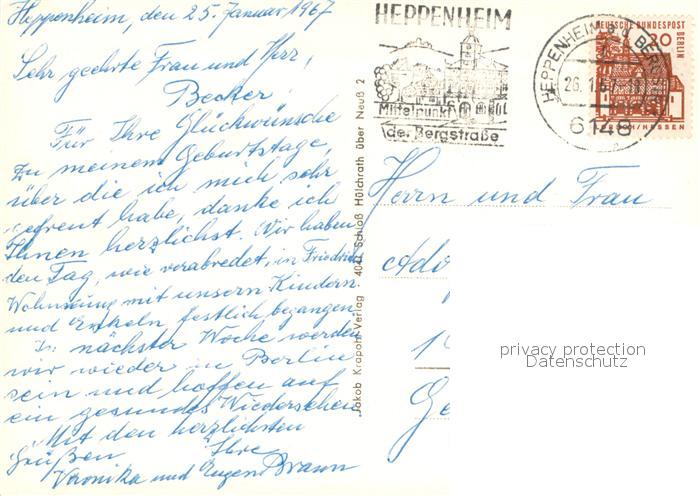 Heppenheim, den 25. Januar 1967
Sehr geehrte Frau und Herr,
Becker
Für Ihre Glückwünsche
zu meinem Geburtstage,
über die ich mich sehr
gefreut habe, danke ich
Ihnen herzlichst. Wir haben
den Tag, wie verabredet, in Friedrichs
Wohnung mit unsern Kindern
und Enkeln festlich begangen.
In nächster Woche werden
wir wieder in Berlin
sein und hoffen auf
ein gesundes Wiedersehen.
Mit den herzlichsten
Grüßen Ihre
Veronika und Eugen Braun
Jakob Krapohl-Verlag · 4041 Schloß Hülchrath über Neuß 2
HEPPENHEIM
Mittelpunkt
der Bergstraße
HEPPENHEIM a. d. BERG
26. 1. 67
6148
DEUTSCHE BUNDESPOST
BERLIN
20
LORSCH/HESSEN
Herrn und Frau
Ado
1
Ge
privacy protection
Datenschutz